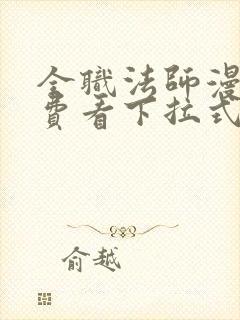 全職法師漫
費看下拉式
俞越